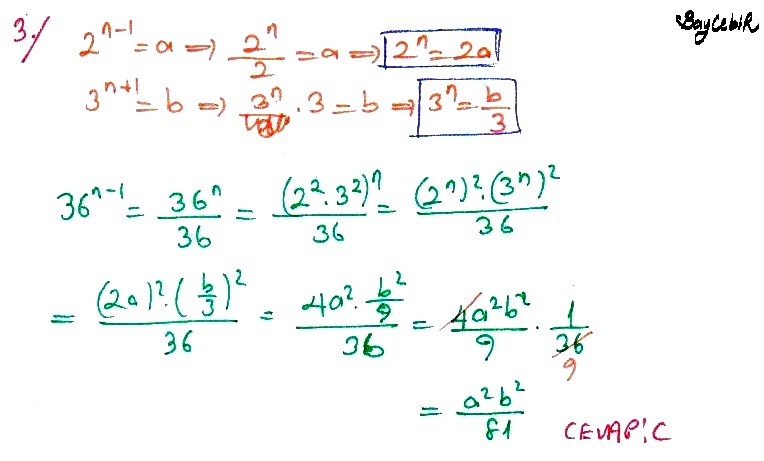 3./
BayCebir
2^{n-1} = a ⟹ 2^n/2 = a ⟹ 2^n = 2a
3^{n+1} = b ⟹ 3^n · 3 = b ⟹ 3^n = b/3
36^{n-1} = 36^n/36 = (2^2 · 3^2)^n/36 = (2^n)^2 · (3^n)^2/36
= (2a)^2 · (b/3)^2/36 = 4a^2 · b^2/9/36 = 4a^2b^2/9 · 1/36 9
= a^2b^2/81 CEVAP: C